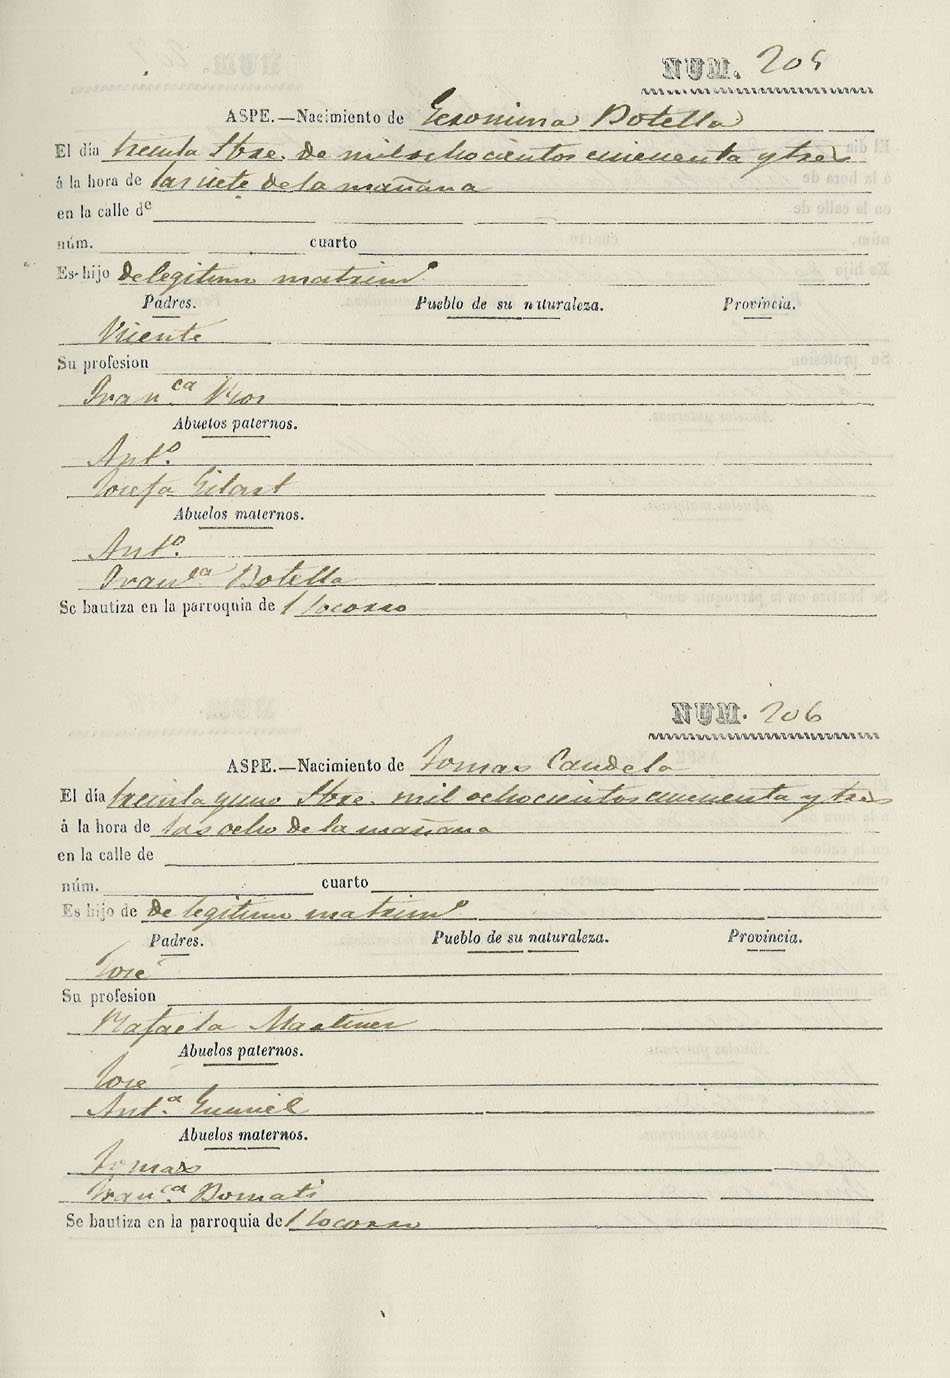 NUM. 205
ASPE.—Nacimiento de Geronima Botella
El día treinta 8bre. de mil ochocientos cincuenta y tres
á la hora de las siete de la mañana
en la calle de
núm. cuarto
Es hijo de legitimo matrimo
Padres. Pueblo de su naturaleza. Provincia.
Vicente
Su profesion
Franca
Abuelos paternos.
Anto.
Josefa Gilart
Abuelos maternos.
Anto.
Franca Botella
Se bautiza en la parroquia de l Socorro
NUM. 206
ASPE.—Nacimiento de Tomas Candela
El día treinta y uno 8bre. mil ochocientos cincuenta y tres
á la hora de las ocho de la mañana
en la calle de
núm. cuarto
Es hijo de de legitimo matrimo
Padres. Pueblo de su naturaleza. Provincia.
José
Su profesion
Rafaela Martinez
Abuelos paternos.
José
Anta
Abuelos maternos.
Tomas
Franca
Se bautiza en la parroquia de l Socorro